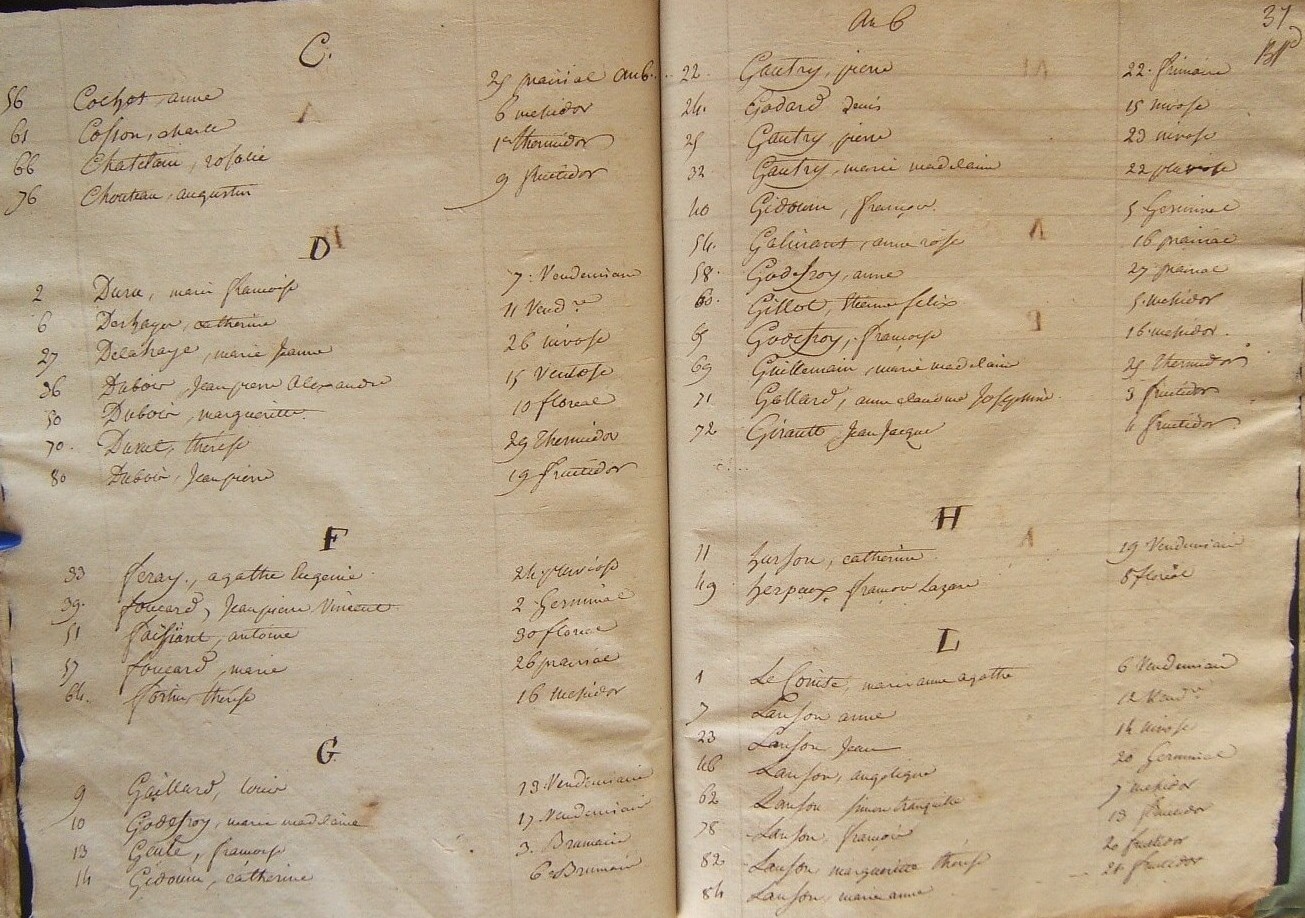 C.
56 Cochot, anne 25 prairial an 6.
61 Cosson, charle 6 messidor
66 Chatelain, rosalie 1er thermidor
76 Chouteau, augustin 9 fructidor
D
2 Duru, marie françoise 7. Vendemiaire
6 Deshayer, catherine 11 Vend.re
27 Delahaye, marie Jeanne 26 nivose
36 Duboir Jean pierre Alexandre 15 Ventose
50 Duboir, margueritte. 10 floreal
70. Duret, thérèse 29 thermidor
80 Duboir, Jean pierre 19 fructidor
F
33 feray, agathe Eugenie 24 pluviose
39. foucard, Jean pierre Vincent 2 Germinal
51 faisiant, antoine 30 floreal
57 foucard, marie 26 prairial
64. thérèse 16 messidor
G
9 Gaillard, louis 13 Vendemiaire
10 Godefroy, marie madelaine 17 Vendemiaire
13 Gente, françoise 3. Brumaire
14 Gidouin, cathérine 6 Brumaire
an 6
37
22. Gautry, pierre 22. frimaire
24. Godard denis 15 nivose
25 Gautry pierre 23 nivose
32 Gautry, marie madelaine 22 pluviose
40 Gidouin, françois. 5 Germinal
54. anne rose 16 prairial
58. Godefroy, anne 27 prairial
60. Gillot, felix 5 messidor
65 Godefroy, françoise 16 messidor.
69 Guillemain, marie madelaine 25 thermidor
71 Gollard, anne claudine Josephine. 3 fructidor
72 Girault Jean Jacque 4 fructidor
H
11 hurson, catherine 19 Vendemiaire
49 herpeux françois Lazare 8 floréal
L
1 Le Comte, marie anne agathe 6 Vendemiaire
7 Lanson anne 12 Vend.re
23 Lanson Jean 14 nivose
46 Lanson, angelique 20 Germinal
62 Lanson simon tranquille 7 messidor
78 Lanson, françois 13 fructidor
82 Lanson margueritte thérèse 20 fructidor
84 Lanson, marie anne 21 fructidor